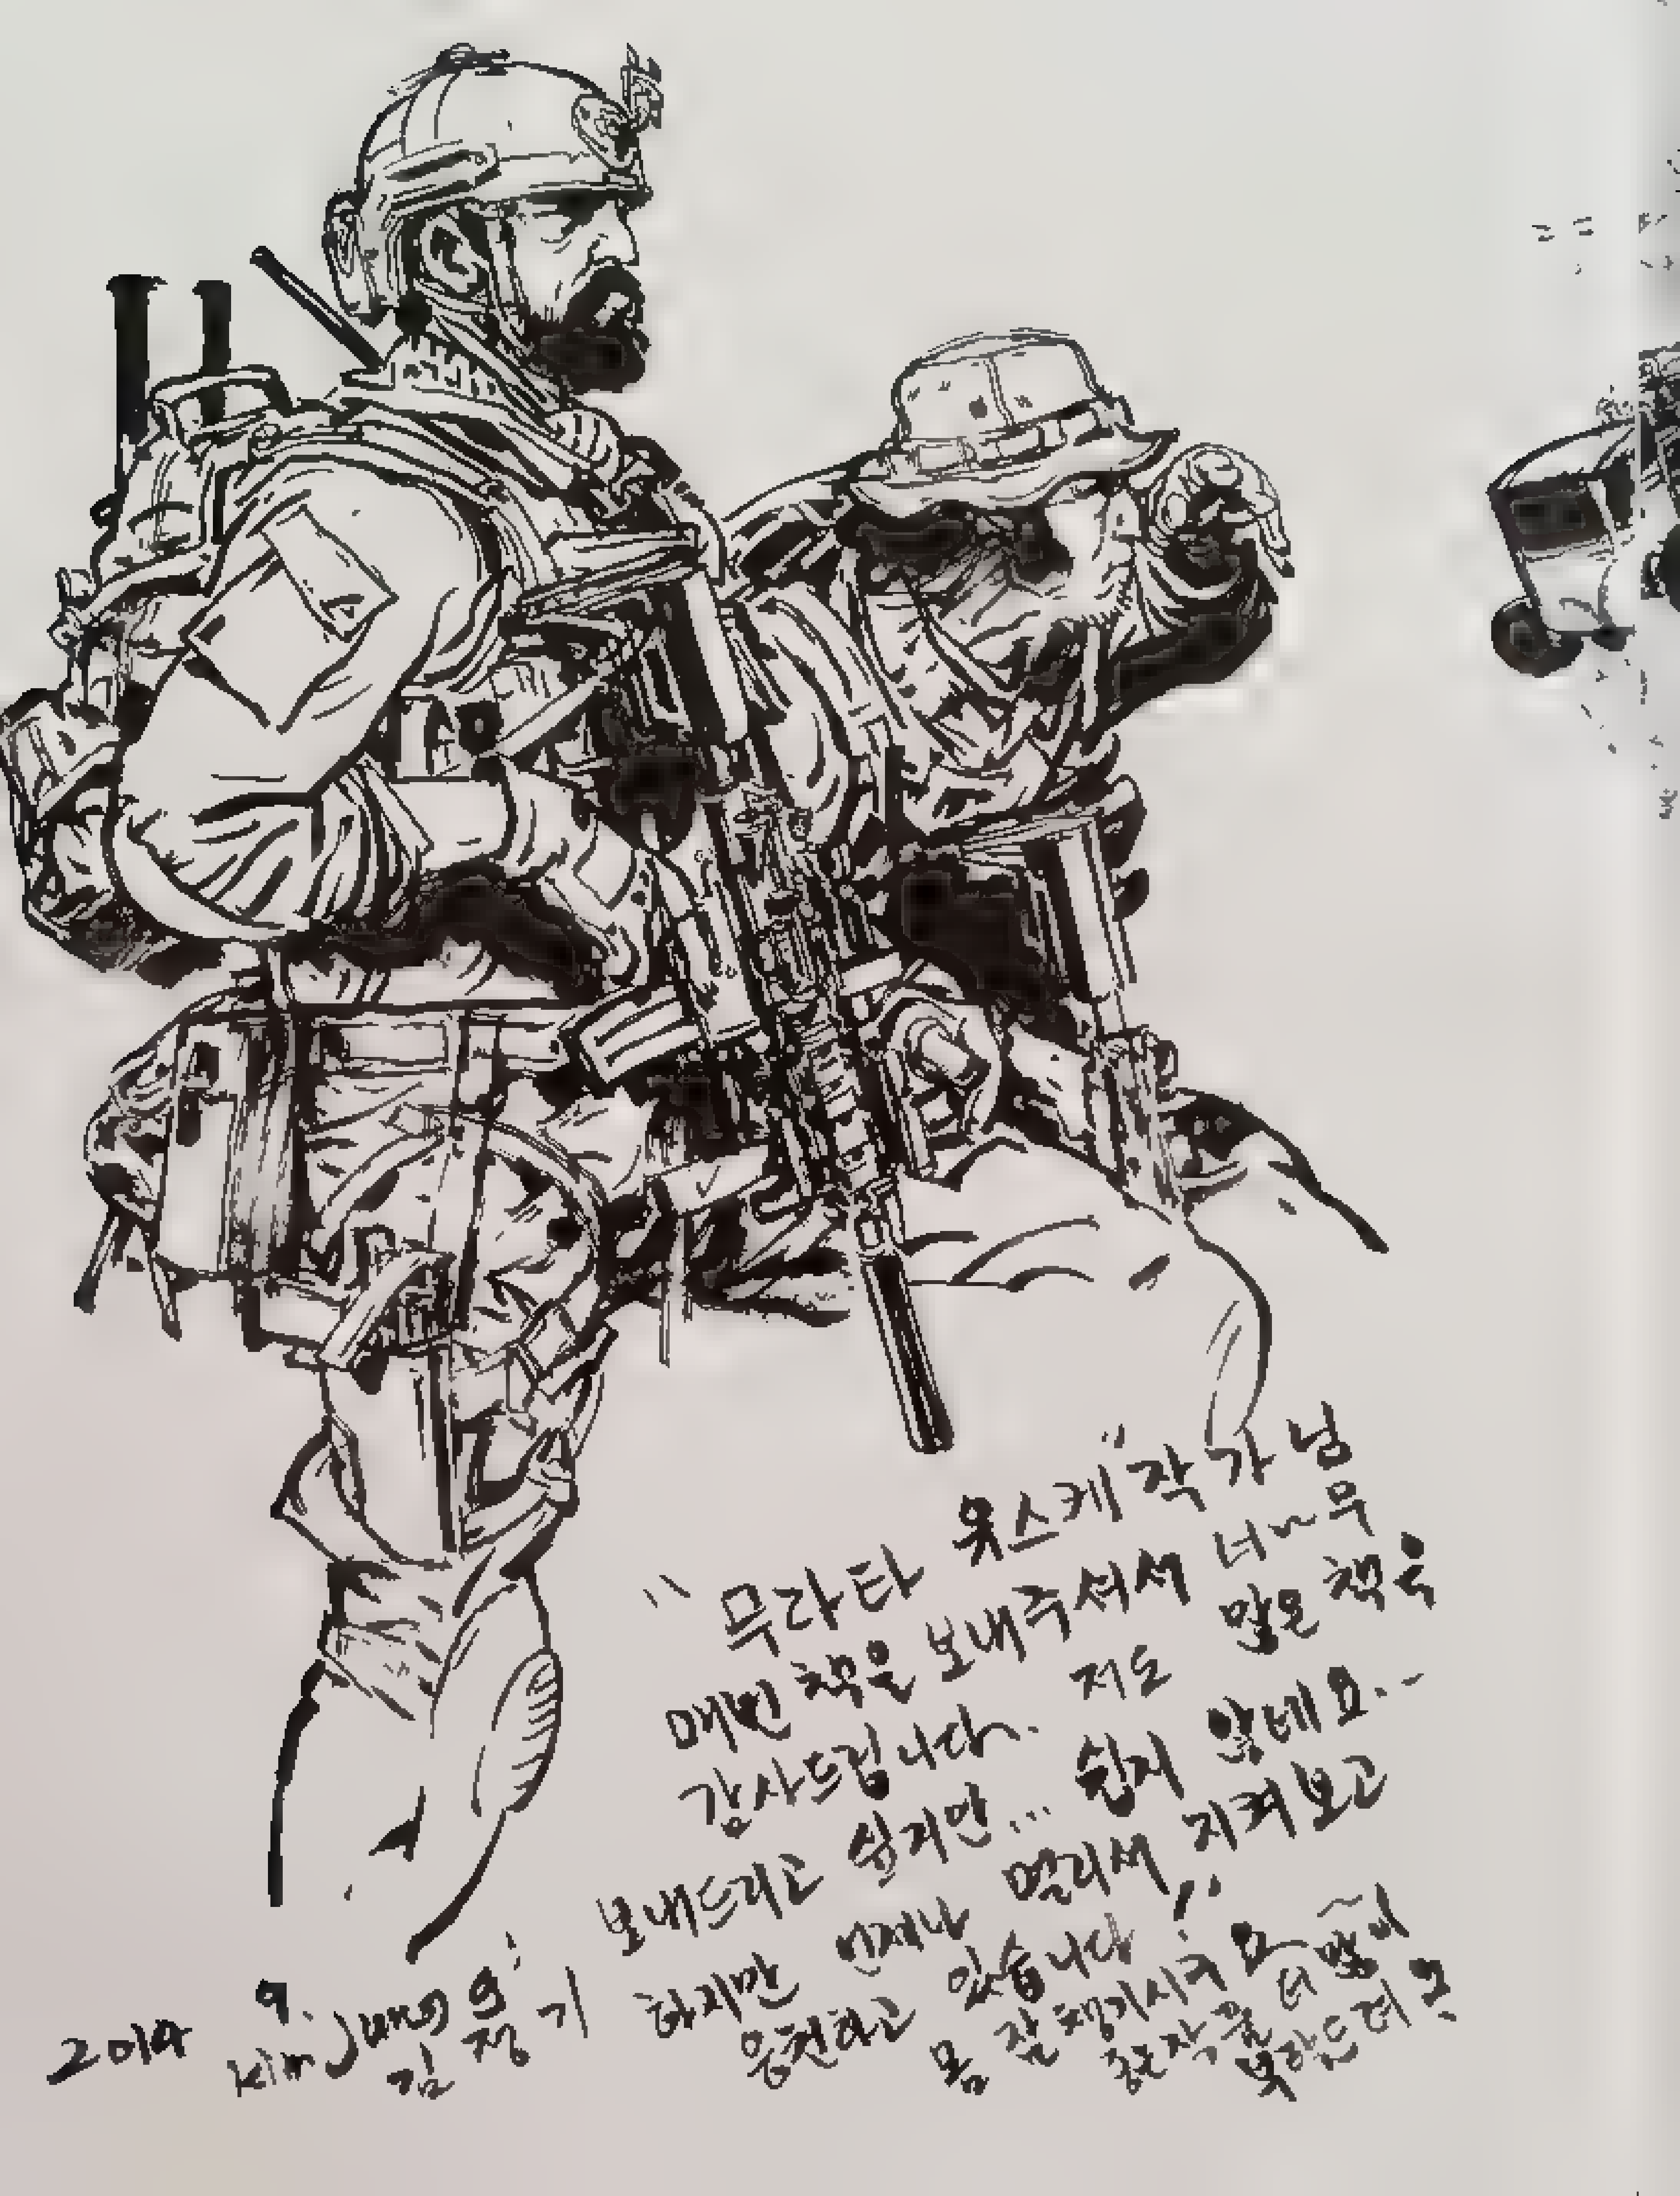 "무라타 유스케" 작가님
매번 책을 보내주셔서 너~무
감사드립니다. 저도 많은 책을
보내드리고 싶지만... 쉽지 않네요..
하지만 언제나 멀리서 지켜보고
응원하고 있습니다!!
몸 잘 챙기시구요~
좋은 작품 더 많이
부탁드려요.
2019 9.
Kim Jung gi
김정기